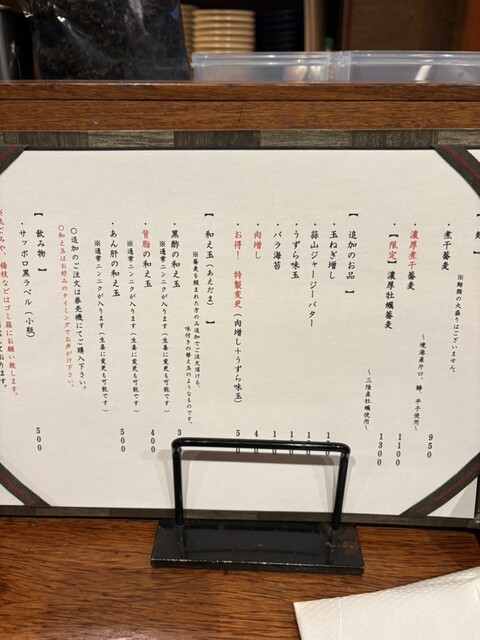 麺 】
※麺類の大盛りはございません。
・煮干蕎麦 950
～境港産片口、鯵、平子使用～
・濃厚煮干蕎麦 1100
・【限定】濃厚牡蠣蕎麦 1300
～三陸産牡蠣使用～
【 追加のお品 】
・玉ねぎ増し
・蒜山ジャージーバター
・うずら味玉
・バラ海苔
・肉増し
・お得! 特製変更(肉増し+うずら味玉)
【 和え玉(あえだま) 】
※蕎麦を頼まれた方のみ追加でご注文頂ける、
味付きの替え玉のようなものです。
・黒酢の和え玉
※通常ニンニクが入ります(生姜に変更も可能です)
・背脂の和え玉 400
※通常ニンニクが入ります(生姜に変更も可能です)
・あん肝の和え玉 500
※通常ニンニクが入ります(生姜に変更も可能です)
〇追加のご注文は券売機にてご購入下さい。
〇和え玉はお好みのタイミングでお声がけ下さい。
【 飲み物 】
・サッポロ黒ラベル(小瓶) 500
楊枝などはゴミ箱にお願い致します。